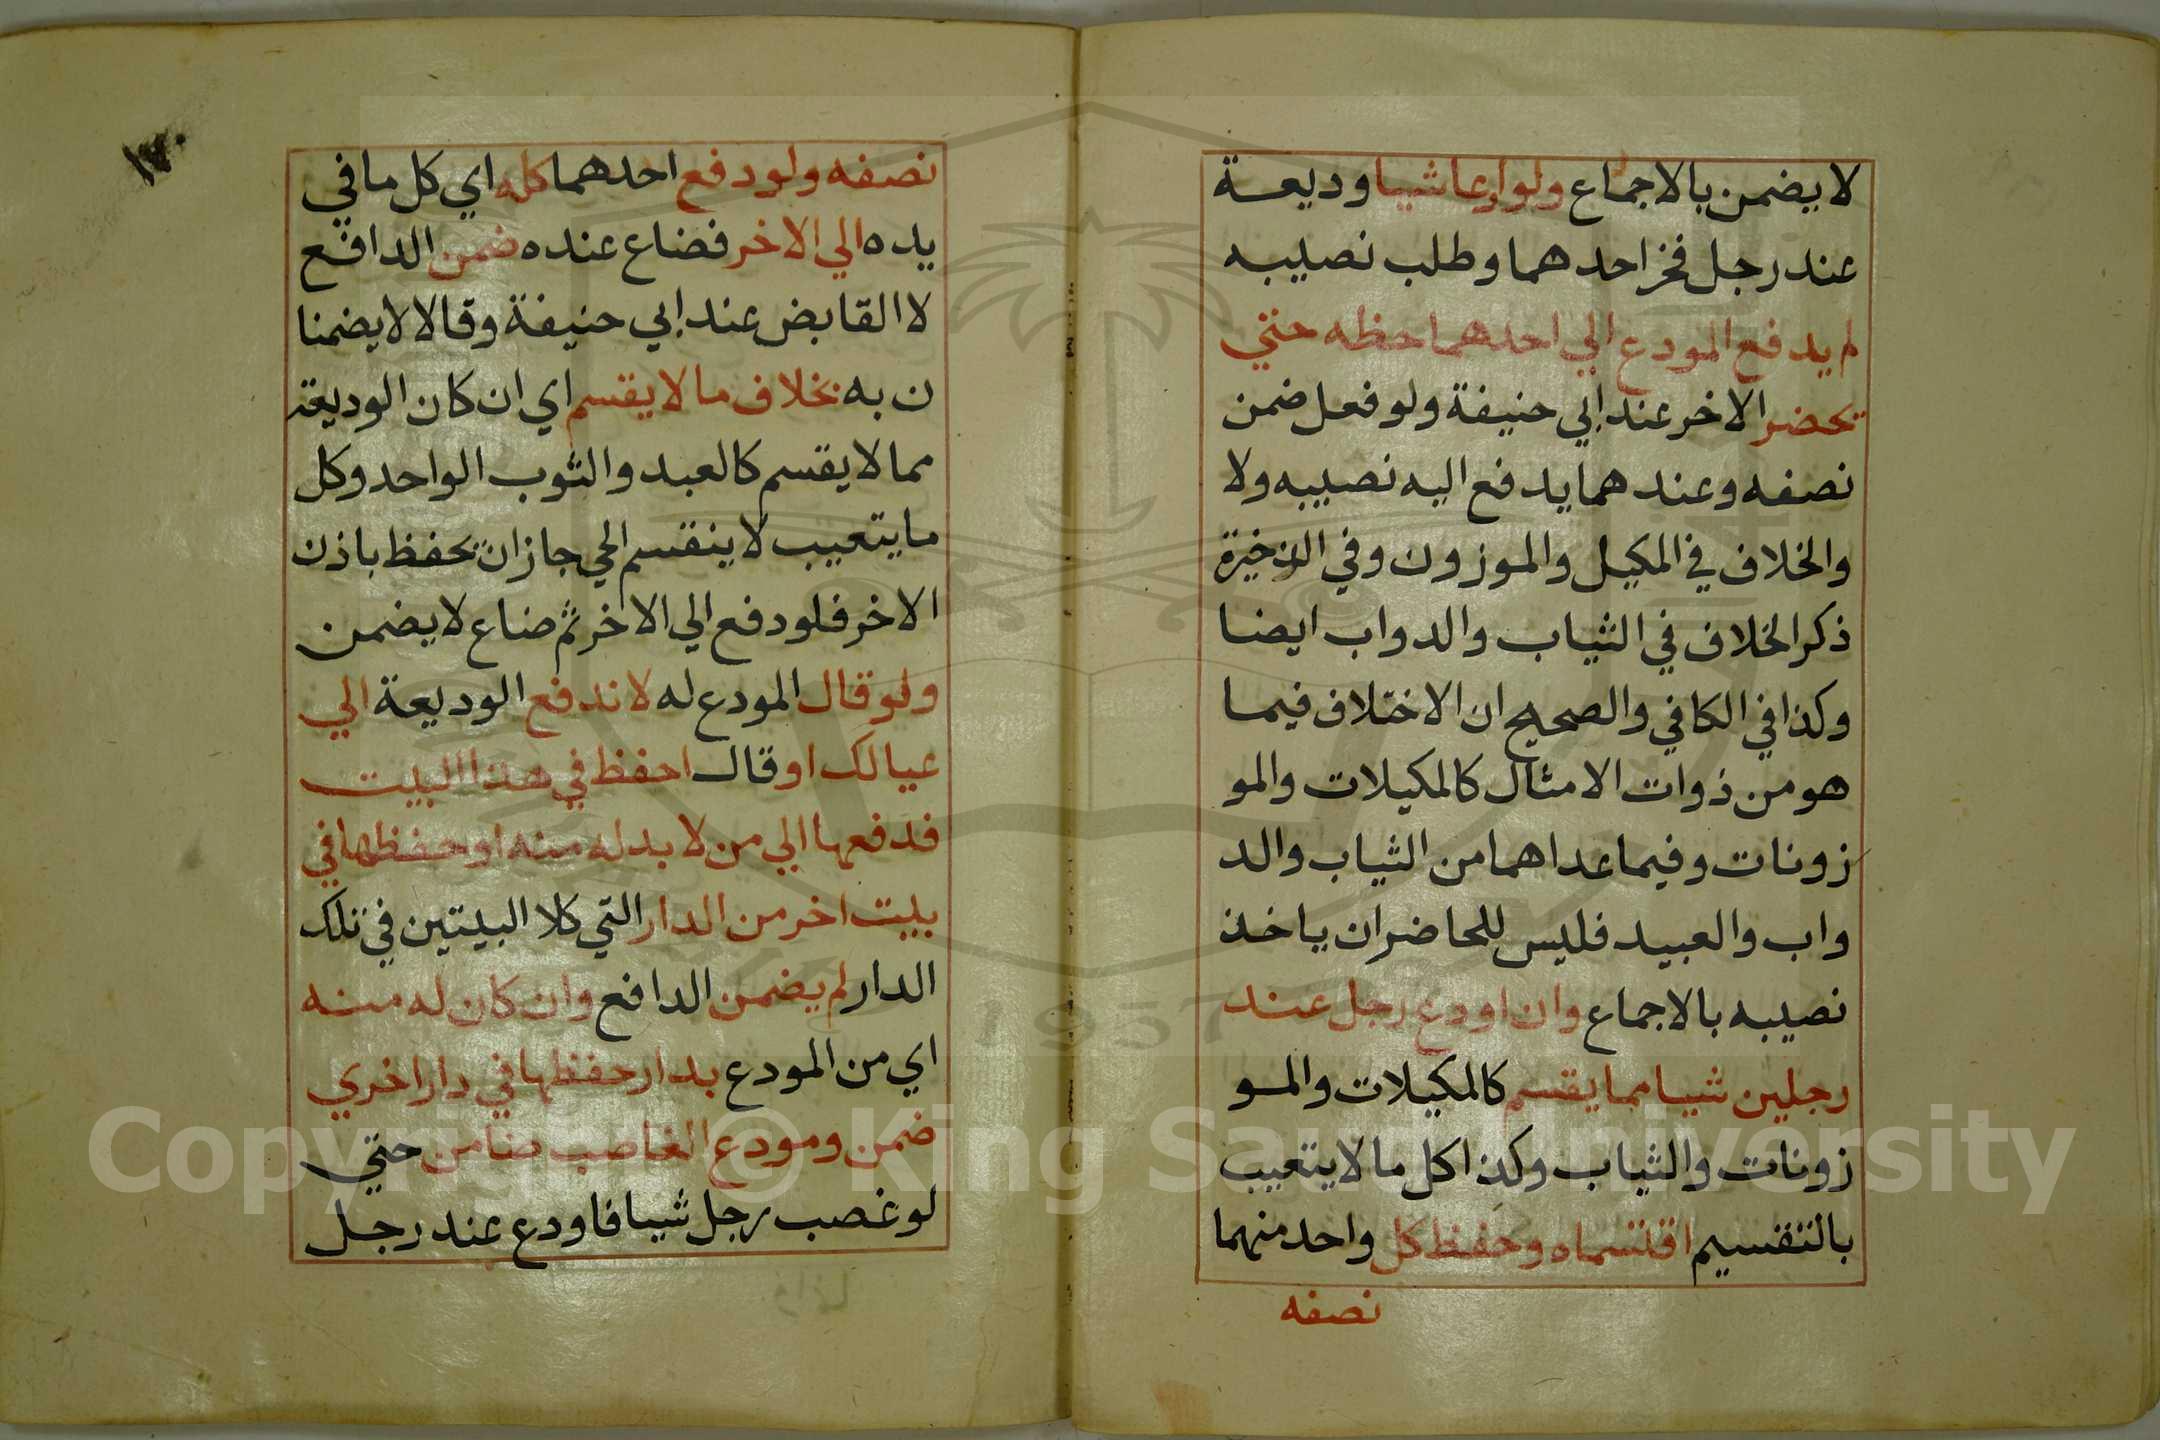 لا يضمن بالاجماع ولو اودعا شيا وديعة
عند رجل فخز احدهما وطلب نصيبه
لم يدفع المودع الي احدهما حظه حتي
يحضر الاخر عند ابي حنيفة ولو فعل ضمن
نصفه وعندهما يدفع اليه نصيبه ولا
والخلاف في المكيل والموزون وفي الذخيرة
ذكر الخلاف في الثياب والدواب ايضا
وكذا في الكافي والصحيح ان الاختلاف فيما
هو من ذوات الامثال كالمكيلات والمو
زونات وفيما عداهما من الثياب والد
واب والعبيد فليس للحاضر ان ياخذ
نصيبه بالاجماع وان اودع رجل عند
رجلين شيا مما يقسم كالمكيلات والمو
زونات والثياب وكذا كل ما لا يتعيب
بالتقسيم اقتسماه وحفظ كل واحد منهما
نصفه
١٧٠
نصفه ولو دفع احدهما كله اي كل ما في
يده الي الاخر فضاع عنده ضمن الدافع
لا القابض عند ابي حنيفة وقالا لا يضمنا
ن به بخلاف ما لا يقسم اي ان كان الوديعة
مما لا يقسم كالعبد والثوب الواحد وكل
ما يتعيب لا ينقسم الي جاز ان يحفظ باذن
الاخر فلو دفع الي الاخر ثم ضاع لا يضمن
ولو قال المودع له لا تدفع الوديعة الي
عيالك او قال احفظ في هذا البيت
فدفعها الي من لا بد له منه او حفظها في
بيت اخر من الدار التي كلا البيتين في تلك
الدار لم يضمن الدافع وان كان له منه
اي من المودع بدار حفظها في دار اخري
ضمن ومودع الغاصب ضامن حتي
لو غصب رجل شيا فاودع عند رجل
1957
Copyright © King Saud University